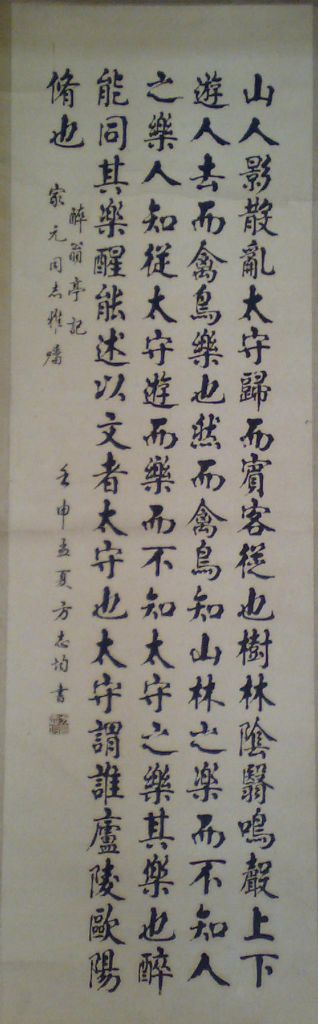 山人影散亂太守歸而賓客從也樹林陰翳鳴聲上下
遊人去而禽鳥樂也然而禽鳥知山林之樂而不知人
之樂人知從太守遊而樂而不知太守之樂其樂也醉
能同其樂醒能述以文者太守也太守謂誰廬陵歐陽
脩也
醉翁亭記
家元同志雅
壬申孟夏方志均書